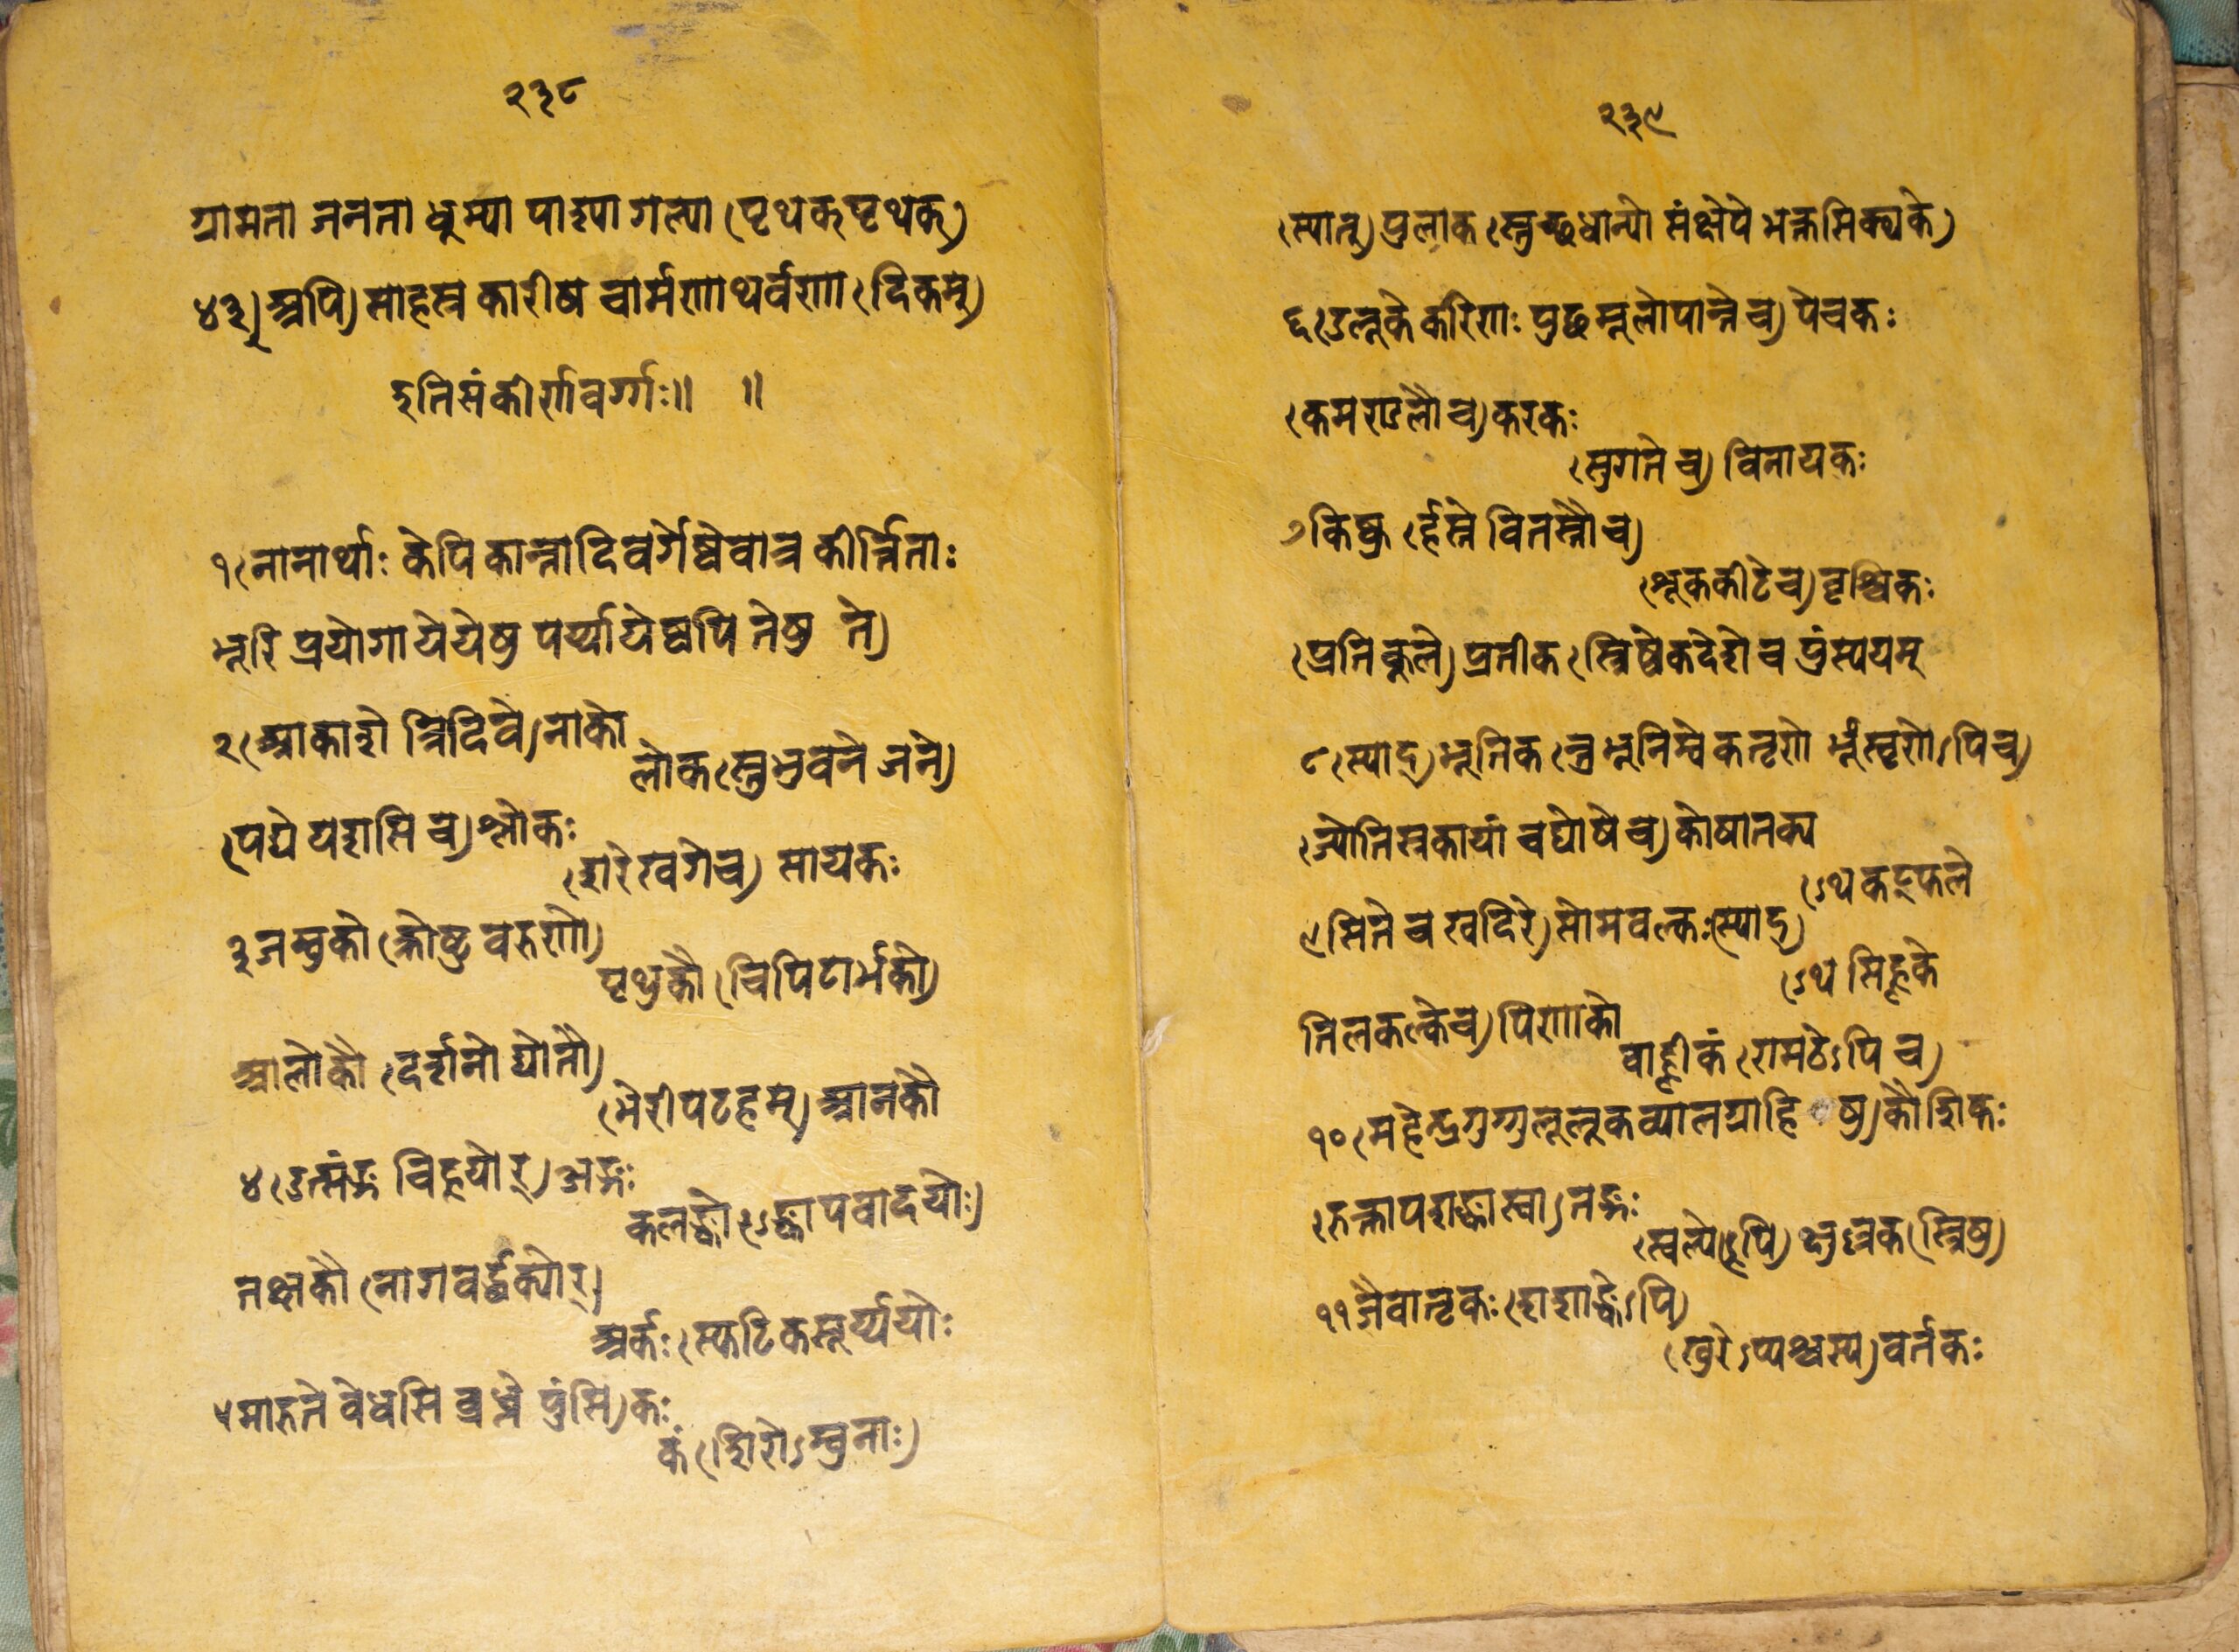 २३८
ग्रामता जनता धुम्या पाश्या गल्या (पृथक्पृथक्)
४३) अपि) साहस्र कारीष चार्मणाथर्वणा (दिकम्)
इति संकीर्णवर्ग्गः॥ ॥
१ (नानार्थाः केपि कान्तादिवर्गेष्वेवात्र कीर्त्तिताः
भूरि प्रयोगा ये येषु पर्य्यायेष्वपि तेषु ते)
२ (आकाशे त्रिदिवे) नाको
लोक (स्तु भुवने जने)
(पद्ये यशसि च) श्लोकः
(शरे खगे च) सायकः
३ जम्बुको (क्रोष्टु वरुणो)
पृथुकौ (चिपिटार्भको)
आलोकौ (दर्शनो द्योतौ)
(भेरीपटहम्) आनकौ
४ (उत्संङ्ग चिह्नयोर्) अङ्कः
कलङ्को (ऽङ्कापवादयोः)
तक्षकौ (नागवर्द्धक्योर्)
अर्कः (स्फटिकसूर्य्ययोः
५ मारुते वेधसि ब्रध्ने पुंसि) कः
कं (शिरोऽम्बुनोः)
२३९
(स्यात्) पुलाक (स्तुच्छधान्ये संक्षेपे भक्तसिक्थके)
६ (उलूके करिणः पुच्छमूलोपान्ते च) पेचकः
(कमण्डलौ च) करकः
(सुगते च) विनायकः
७ किष्कु (र्हस्ते वितस्तौ च)
(शूककीटे च) वृश्चिकः
(प्रतिकूले) प्रतीक (स्त्रिष्वेकदेशे च पुंस्ययम्
८ (स्याद्) भूतिक (न्तु भूनिम्बे कत्तृणे भूंस्तृणेऽपि च)
(ज्योत्निस्नकायां च घोषे च) कोषातक्य
(ऽथ कट्फले
९ सिते च खदिरे) सोमवल्कः (स्याद्)
(ऽथ सिह्लके
तिलकल्के च) पिण्याको
वाह्लीकं (रामठेऽपि च)
१० (महेन्द्रगुग्गुलूलूकव्यालग्राहिषु) कौशिकः
(रुक्तापशङ्कास्वा) तङ्कः
(स्वल्पेऽपि) क्षुल्लक (स्त्रिषु)
११ जैवातृकः (शशाङ्केऽपि)
(खुरेऽप्यश्वस्य) वर्तकः